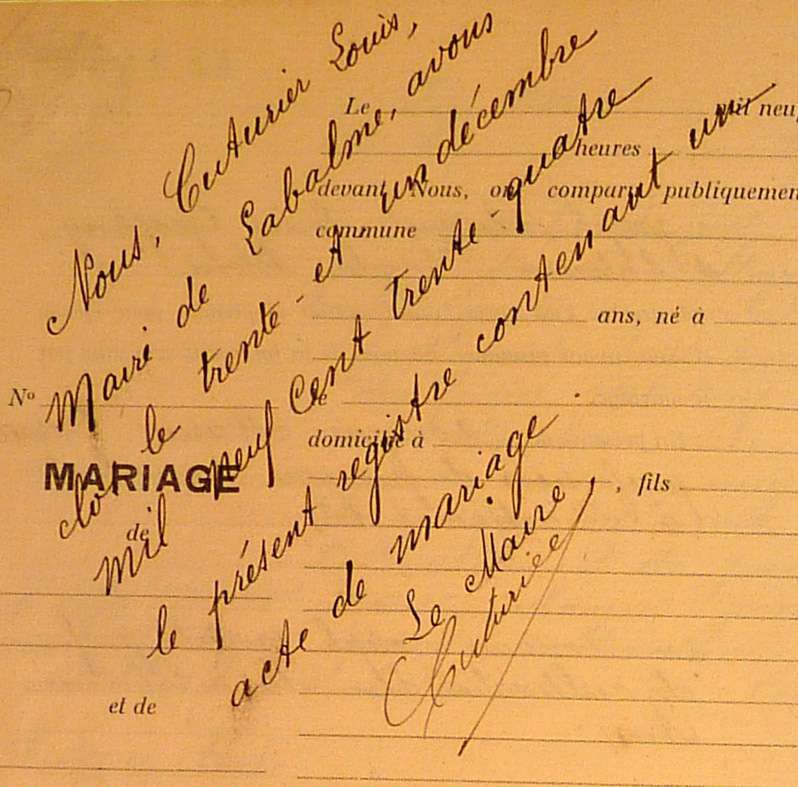 Nous, Cuturier Louis,
Maire de Labalme, avons
clos le trente-et-un décembre
mil neuf cent trente-quatre
le présent registre contenant un
acte de mariage.
Le Maire,
Cuturier
Le
mil neuf
heures
devant Nous, ont comparu publiquement
commune
ans, né à
No
le
domicilié à
MARIAGE
, fils
de
et de